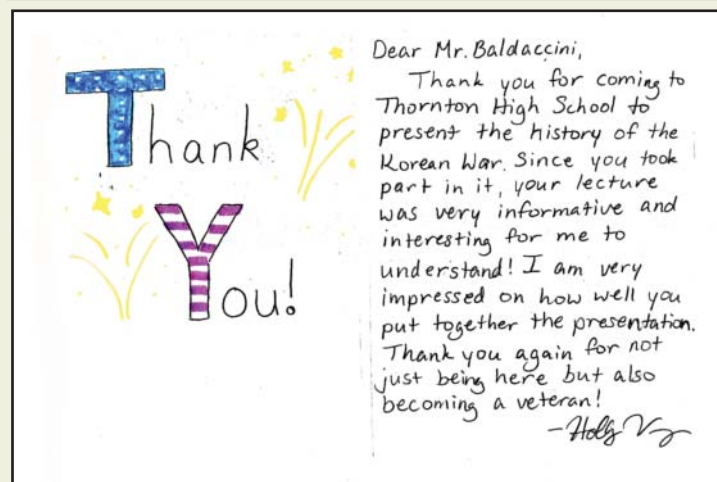 Thank
You!
Dear Mr. Baldaccini,
Thank you for coming to
Thornton High School to
present the history of the
Korean War. Since you took
part in it, your lecture
was very informative and
interesting for me to
understand! I am very
impressed on how well you
put together the presentation.
Thank you again for not
just being here but also
becoming a veteran!
-Holly